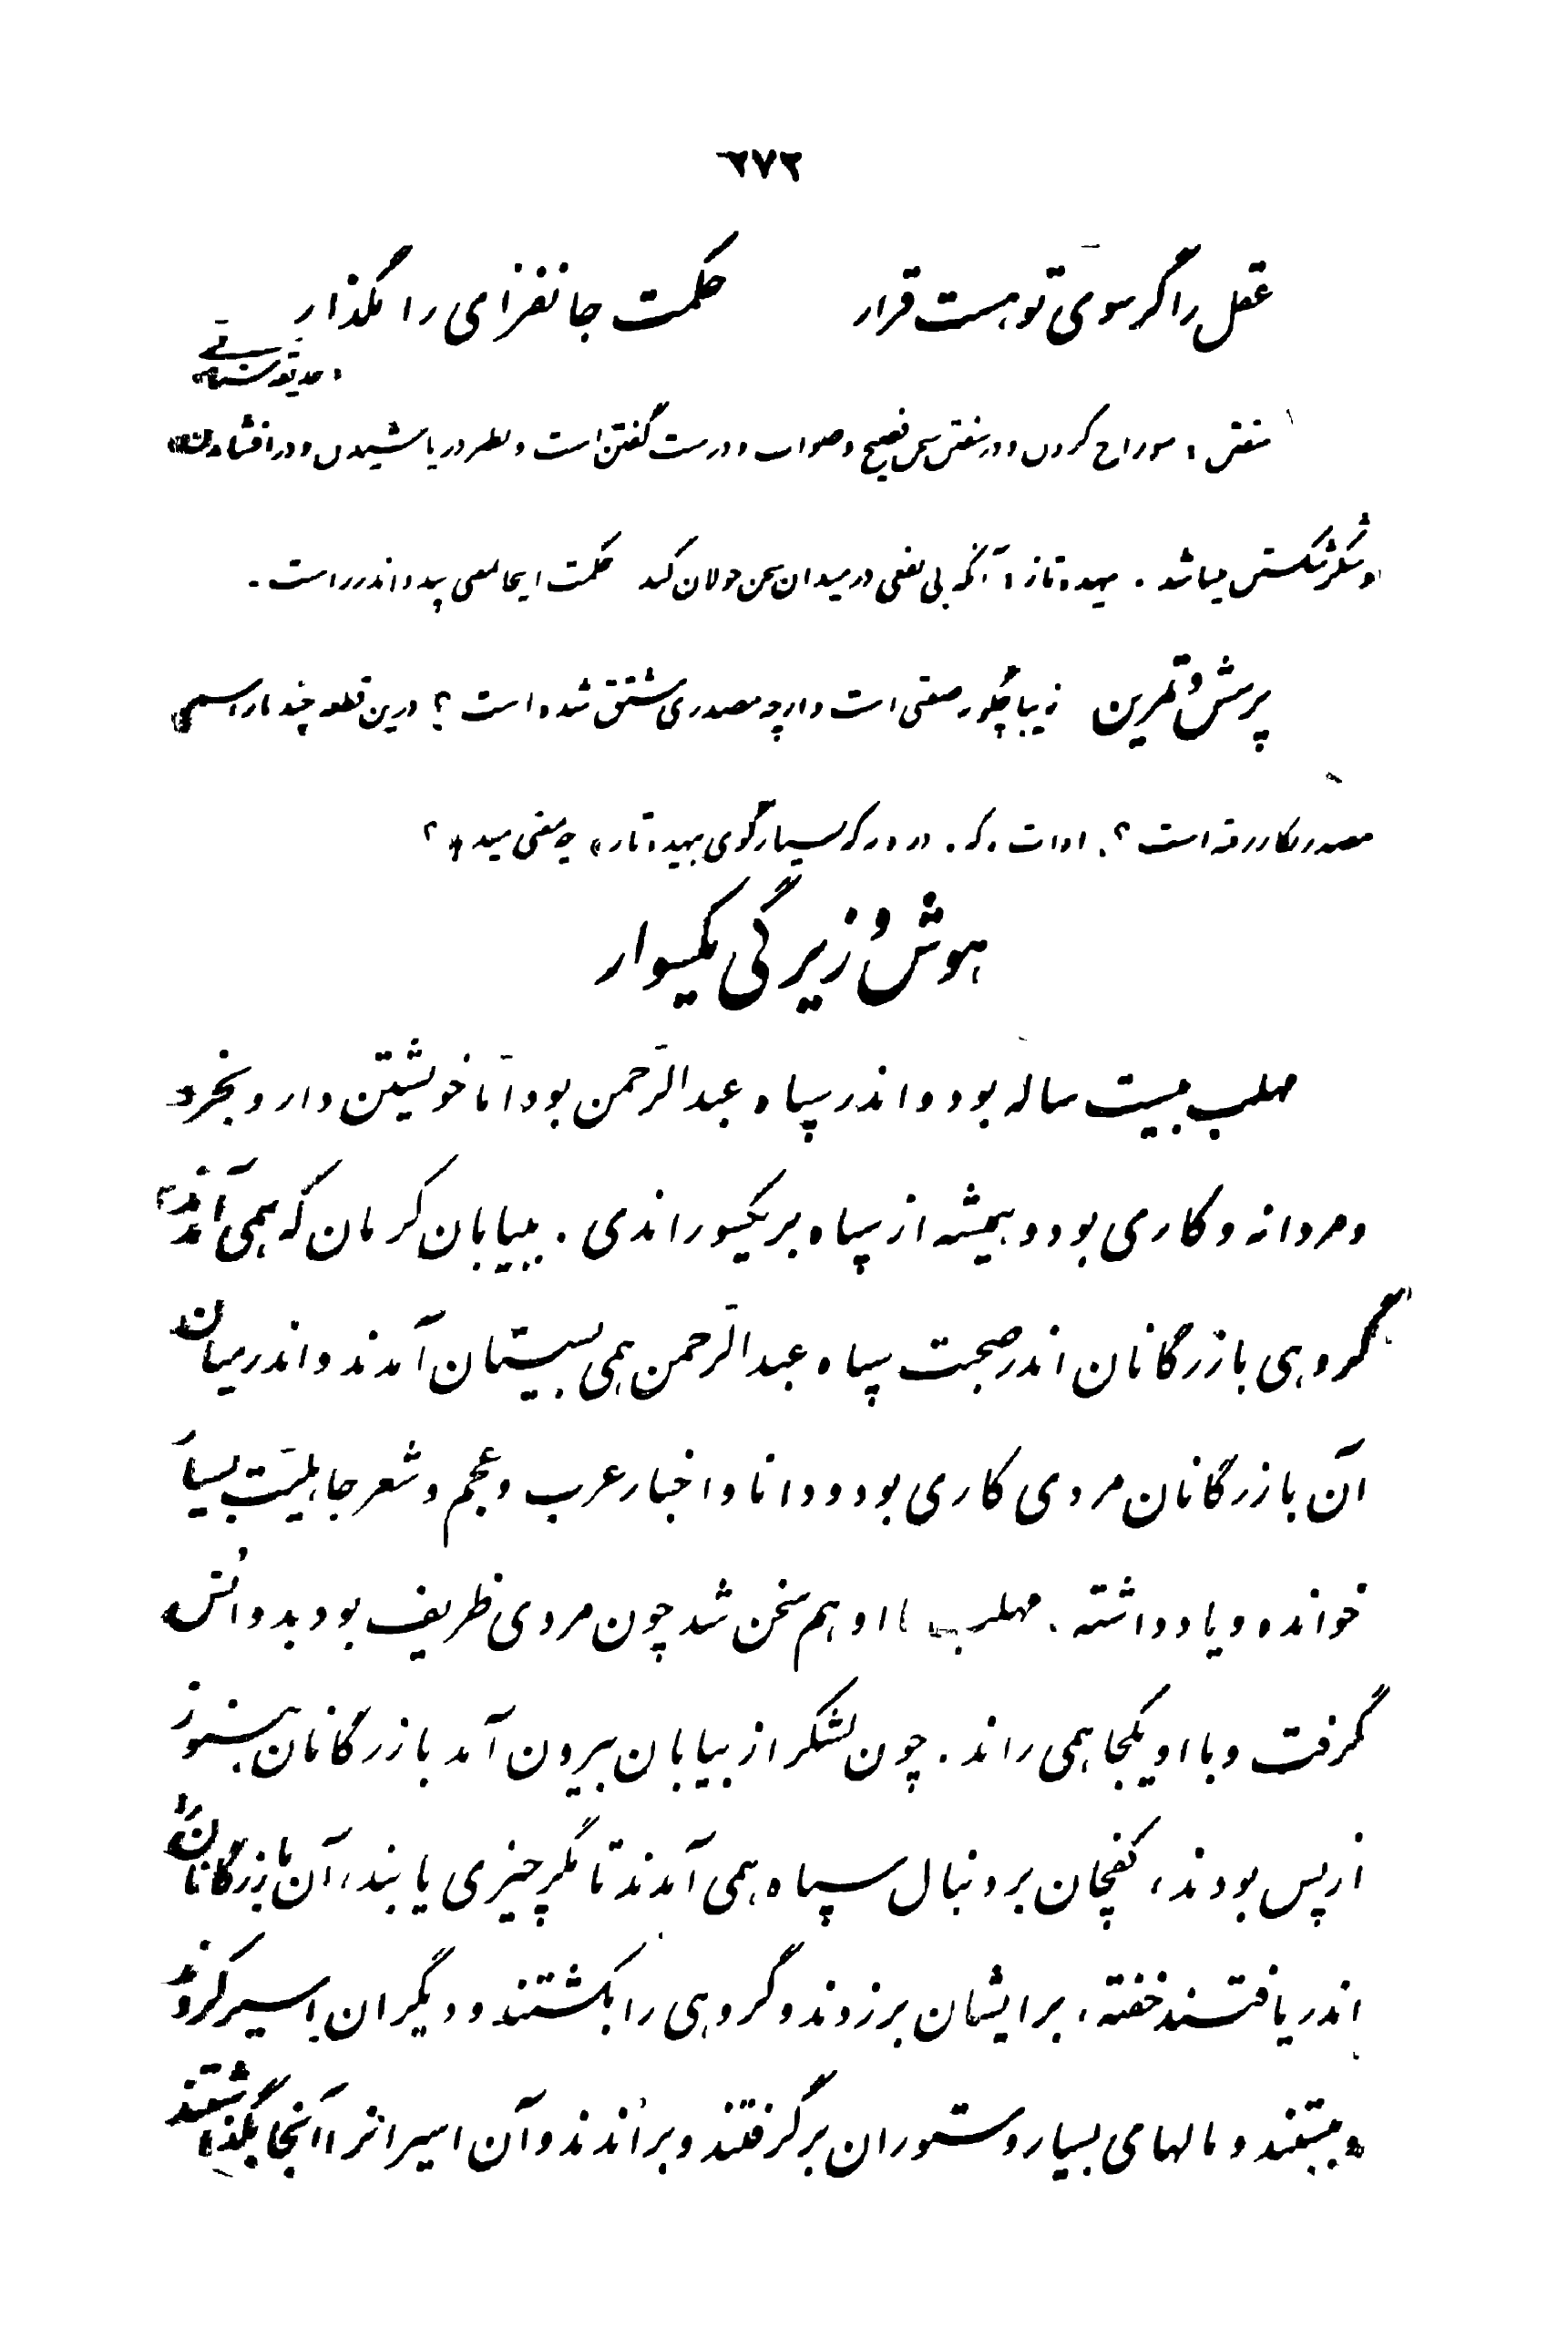 ۲۷۲
عقل را گر سوی تو هست قرار حکمت جانفزای را مگذار
حدیقه سنائی
سفتن : سوراخ کردن و در سفتن سخن فصیح و صواب و درست گفتن است و نظیر در پاشیدن و در افشاندن
و شکر شکستن میباشد . بیهده تاز : آنکه بی نفعی در میدان سخن جولان کند حکمت اینجا بمعنی پند و اندرز است .
پرسش و تمرین زیبا چگونه صفتی است و از چه مصدری مشتق شده است ؟ درین قطعه چند بار اسم
مصدر بکار رفته است ؟ ادات «که» در «ور که بسیار گوی بیهده تاز» چه معنی میدهد ؟
هوش و زیرگی یکسوار
مهلب بیست ساله بود و اندر سپاه عبدالرّحمن بود امّا خویشتن دار و بخرد
و مردانه و کاری بود و همیشه از سپاه بر یکسو راندی . ببیابان کرمان که همی آمدند
گروهی بازرگانان اندر صحبت سپاه عبدالرّحمن همی بسیستان آمدند و اندر میان
آن بازرگانان مردی کاری بود و دانا و اخبار عرب و عجم و شعر جاهلیّت بسیار
خوانده و یاد داشته . مهلب با او هم سخن شد چون مردی ظریف بود بدو انس
گرفت و با او یکجا همی راند . چون لشکر از بیابان بیرون آمد بازرگانان هنوز
از پس بودند ، کفچان بر دنبال سپاه همی آمدند تا مگر چیزی یابند ، آن بازرگانان را
اندر یافتند خفته ، بر ایشان بر زدند و گروهی را بکشتند و دیگران اسیر کردند
و ببستند و مالهای بسیار و ستوران برگرفتند و براندند و آن اسیرانرا آنجا بگذاشتند